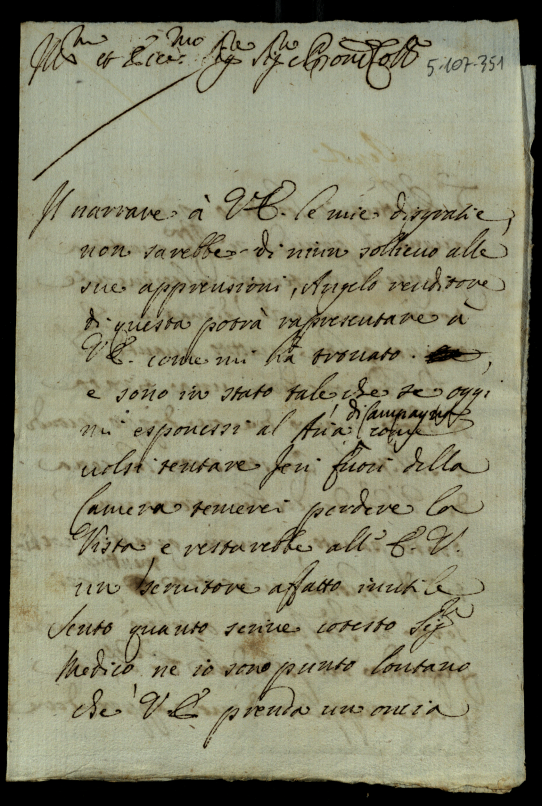 Ill.mo et Ecc.mo Sig.re Sig.r e Pron Col.mo
5-107-351
Il narrare à V.E. le mie disgratie,
non sarebbe di niun sollieuo alle
sue apprensioni, Angelo renditore
di questa potrà rappresentare à
V.E. come mi ha trouato.
e sono in stato tale che se oggi
mi esponessi al aria di Campagna come
uolsi tentare Jeri fuori della
Camera temerei perdere la
Vista e restarebbe all' E. V.
un seruitore affatto inutile
Sento quanto scriue cotesto Sig.r
Medico ne io sono punto lontano
che V.E. prenda un oncia